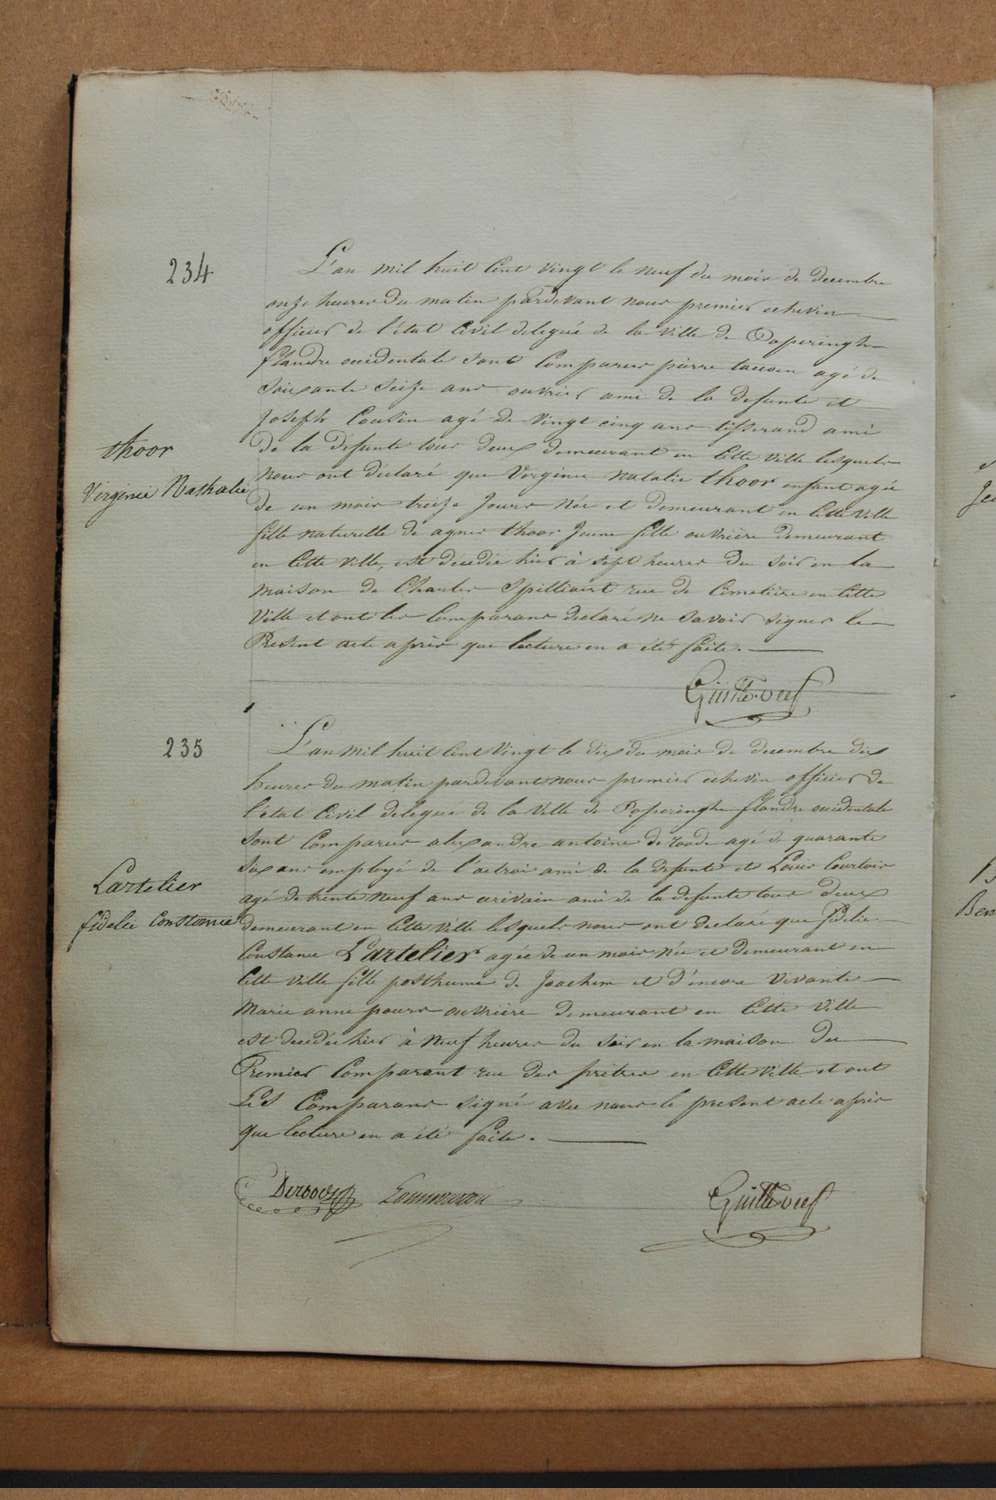 234
thoor
Virginie Nathalie
L'an mil huit Cent vingt le neuf du mois de decembre
onze heures du matin pardevant nous premier echevin
officier de l'état Civil delegué de la Ville de Poperinghe
flandre occidentale sont Comparus pierre agé de
Soixante Seize ans ouvrier ami de la defunte et
Joseph Cousin agé de vingt cinq ans tisserand ami
de la defunte tous deux demeurant en Cette Ville lesquels
nous ont déclaré que Virginie natalie thoor enfant agée
de un mois treize Jours Née et demeurant en Cette Ville
fille naturelle de agnes thoor Jeune fille ouvrière demeurant
en Cette Ville, est decedée hier à sept heures du soir en la
maison de Charles Spilliaert rue de Cimetière en Cette
Ville et ont les Comparans declaré ne savoir signer le
Present acte après que lecture en a été faite.
235
Lartelier
fidelie Constance
L'an mil huit Cent Vingt le dix du mois de decembre dix
heures du matin pardevant nous premier echevin officier de
l'état Civil delegué de la Ville de Poperinghe flandre occidentale
sont Comparus alexandre antoine de roode agé de quarante
six ans employé de l'octroi ami de la defunte et Louis Courtois
agé de trente Neuf ans ecrivain ami de la defunte tous deux
demeurant en Cette Ville lesquels nous ont declaré que fidelie
Constance Lartelier agée de un mois Née et demeurant en
Cette Ville fille posthume de Joachim et d'encore Vivante
Marie anne ouvrière demeurant en Cette Ville
est decedée hier à Neuf heures du Soir en la maison du
Premier Comparant rue des pretres en Cette Ville et ont
Les Comparans signé avec nous le present acte après
que lecture en a été faite.